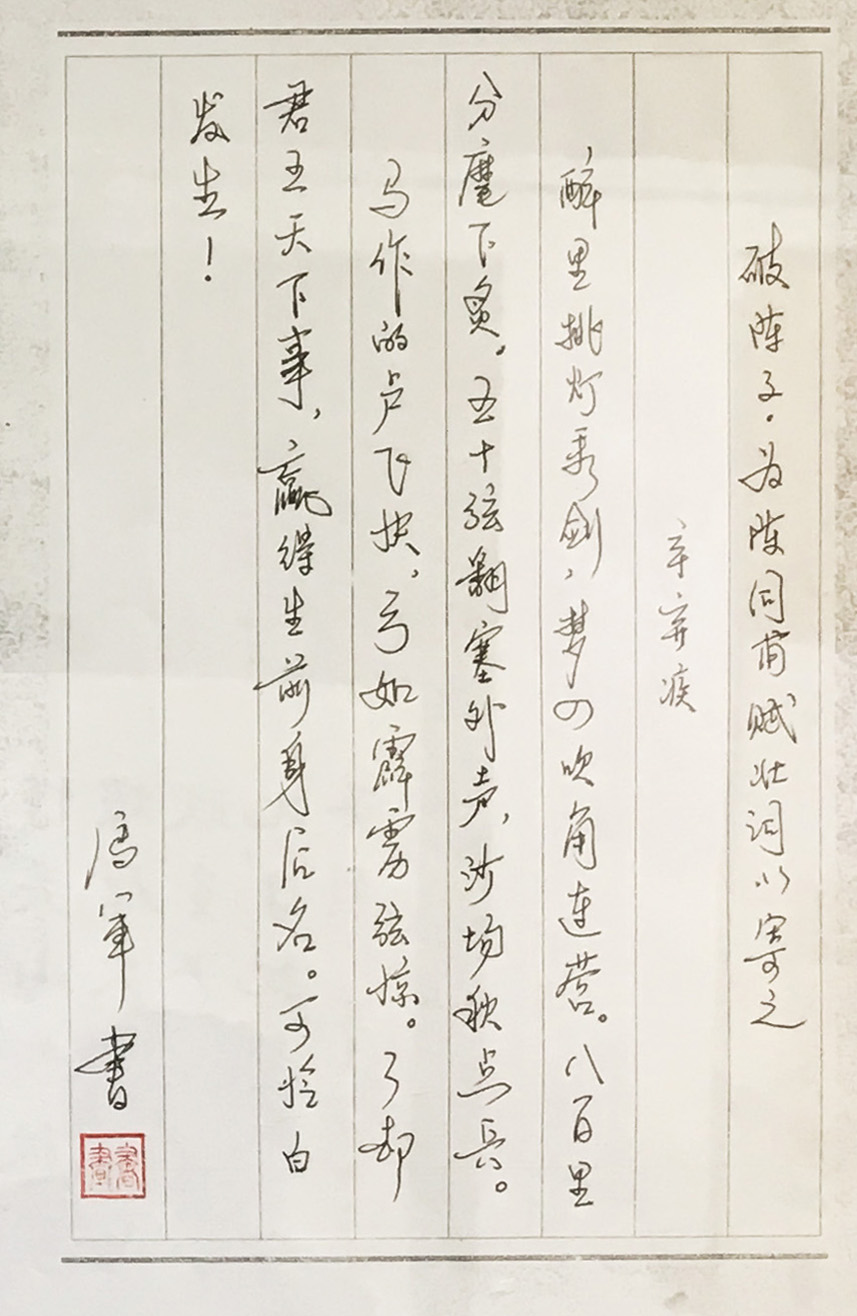 破阵子·为陈同甫赋壮词以寄之
辛弃疾
醉里挑灯看剑，梦回吹角连营。八百里
分麾下炙。五十弦翻塞外声，沙场秋点兵。
马作的卢飞快，弓如霹雳弦惊。了却
君王天下事，赢得生前身后名。可怜白
发生！
军書